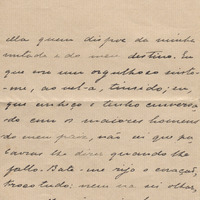 ella quem dispõe da minha
vontade e do meu destino. Eu
que era um orgulhoso sinto-
me, ao vel-a, timido; eu,
que conheço e tenho conversa-
do com os maiores homens
do meu paiz, não sei que pa-
lavras lhe dizer quando lhe
fallo. Bate-me rijo o coração,
troco tudo: nem sei olhar,